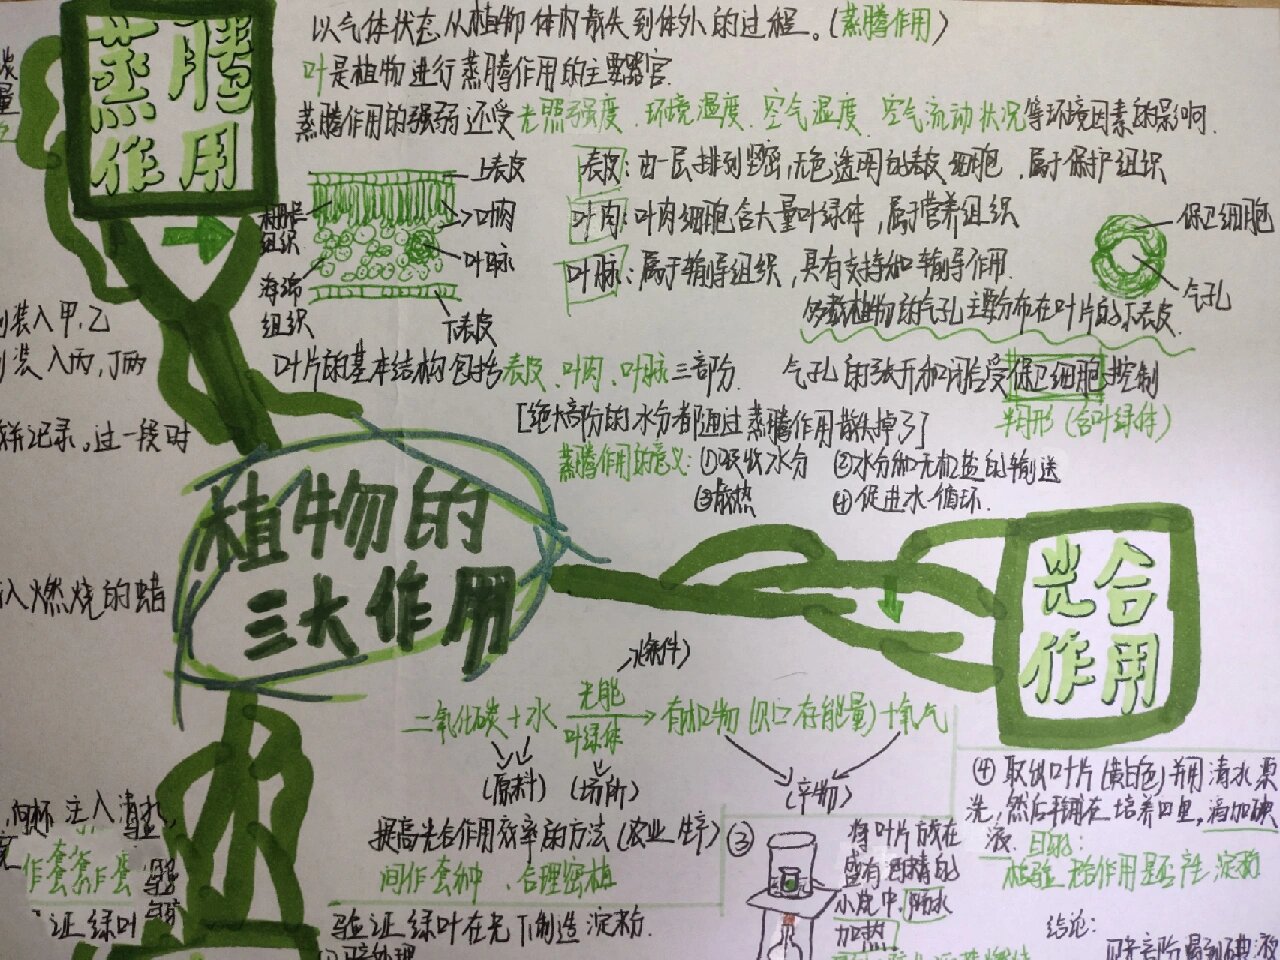 蒸腾
作用
以气体状态从植物体内散失到体外的过程。(蒸腾作用)
叶是植物进行蒸腾作用的主要器官.
蒸腾作用的强弱还受光照强度、环境温度、空气湿度、空气流动状况等环境因素的影响.
上表皮
叶肉
叶脉
下表皮
栅栏
组织
海绵
组织
表皮:由一层排列紧密,无色透明的表皮细胞,属于保护组织
叶肉:叶肉细胞含大量叶绿体,属于营养组织
叶脉:属于输导组织,具有支持和输导作用.
保卫细胞
气孔
植物的气孔主要分布在叶片的下表皮.
叶片的基本结构包括表皮、叶肉、叶脉三部分.
气孔的张开和闭合受保卫细胞控制
半月形(含叶绿体)
[绝大部份的水分都通过蒸腾作用散失掉了]
蒸腾作用的意义:①吸收水分 ②水分和无机盐的输送
③散热 ④促进水循环.
装入甲、乙
装入丙,丁两
并记录。过一段时
入燃烧的蜡
植物的
三大作用
光合
作用
(条件)
二氧化碳+水 光能 叶绿体 有机物(贮存能量)+氧气
(原料) (场所) (产物)
提高光合作用效率的方法(农业生产)
间作套种、合理密植
验证绿叶在光下制造淀粉.
③ 将叶片放在
盛有酒精的
小烧中,隔水
加热
④取出叶片(黄白色)并用清水漂
洗,然后平铺在培养皿里,滴加碘
液.目的:
检验光合作用是否产生淀粉
结论:
向杯注入清水,
作套
证绿叶